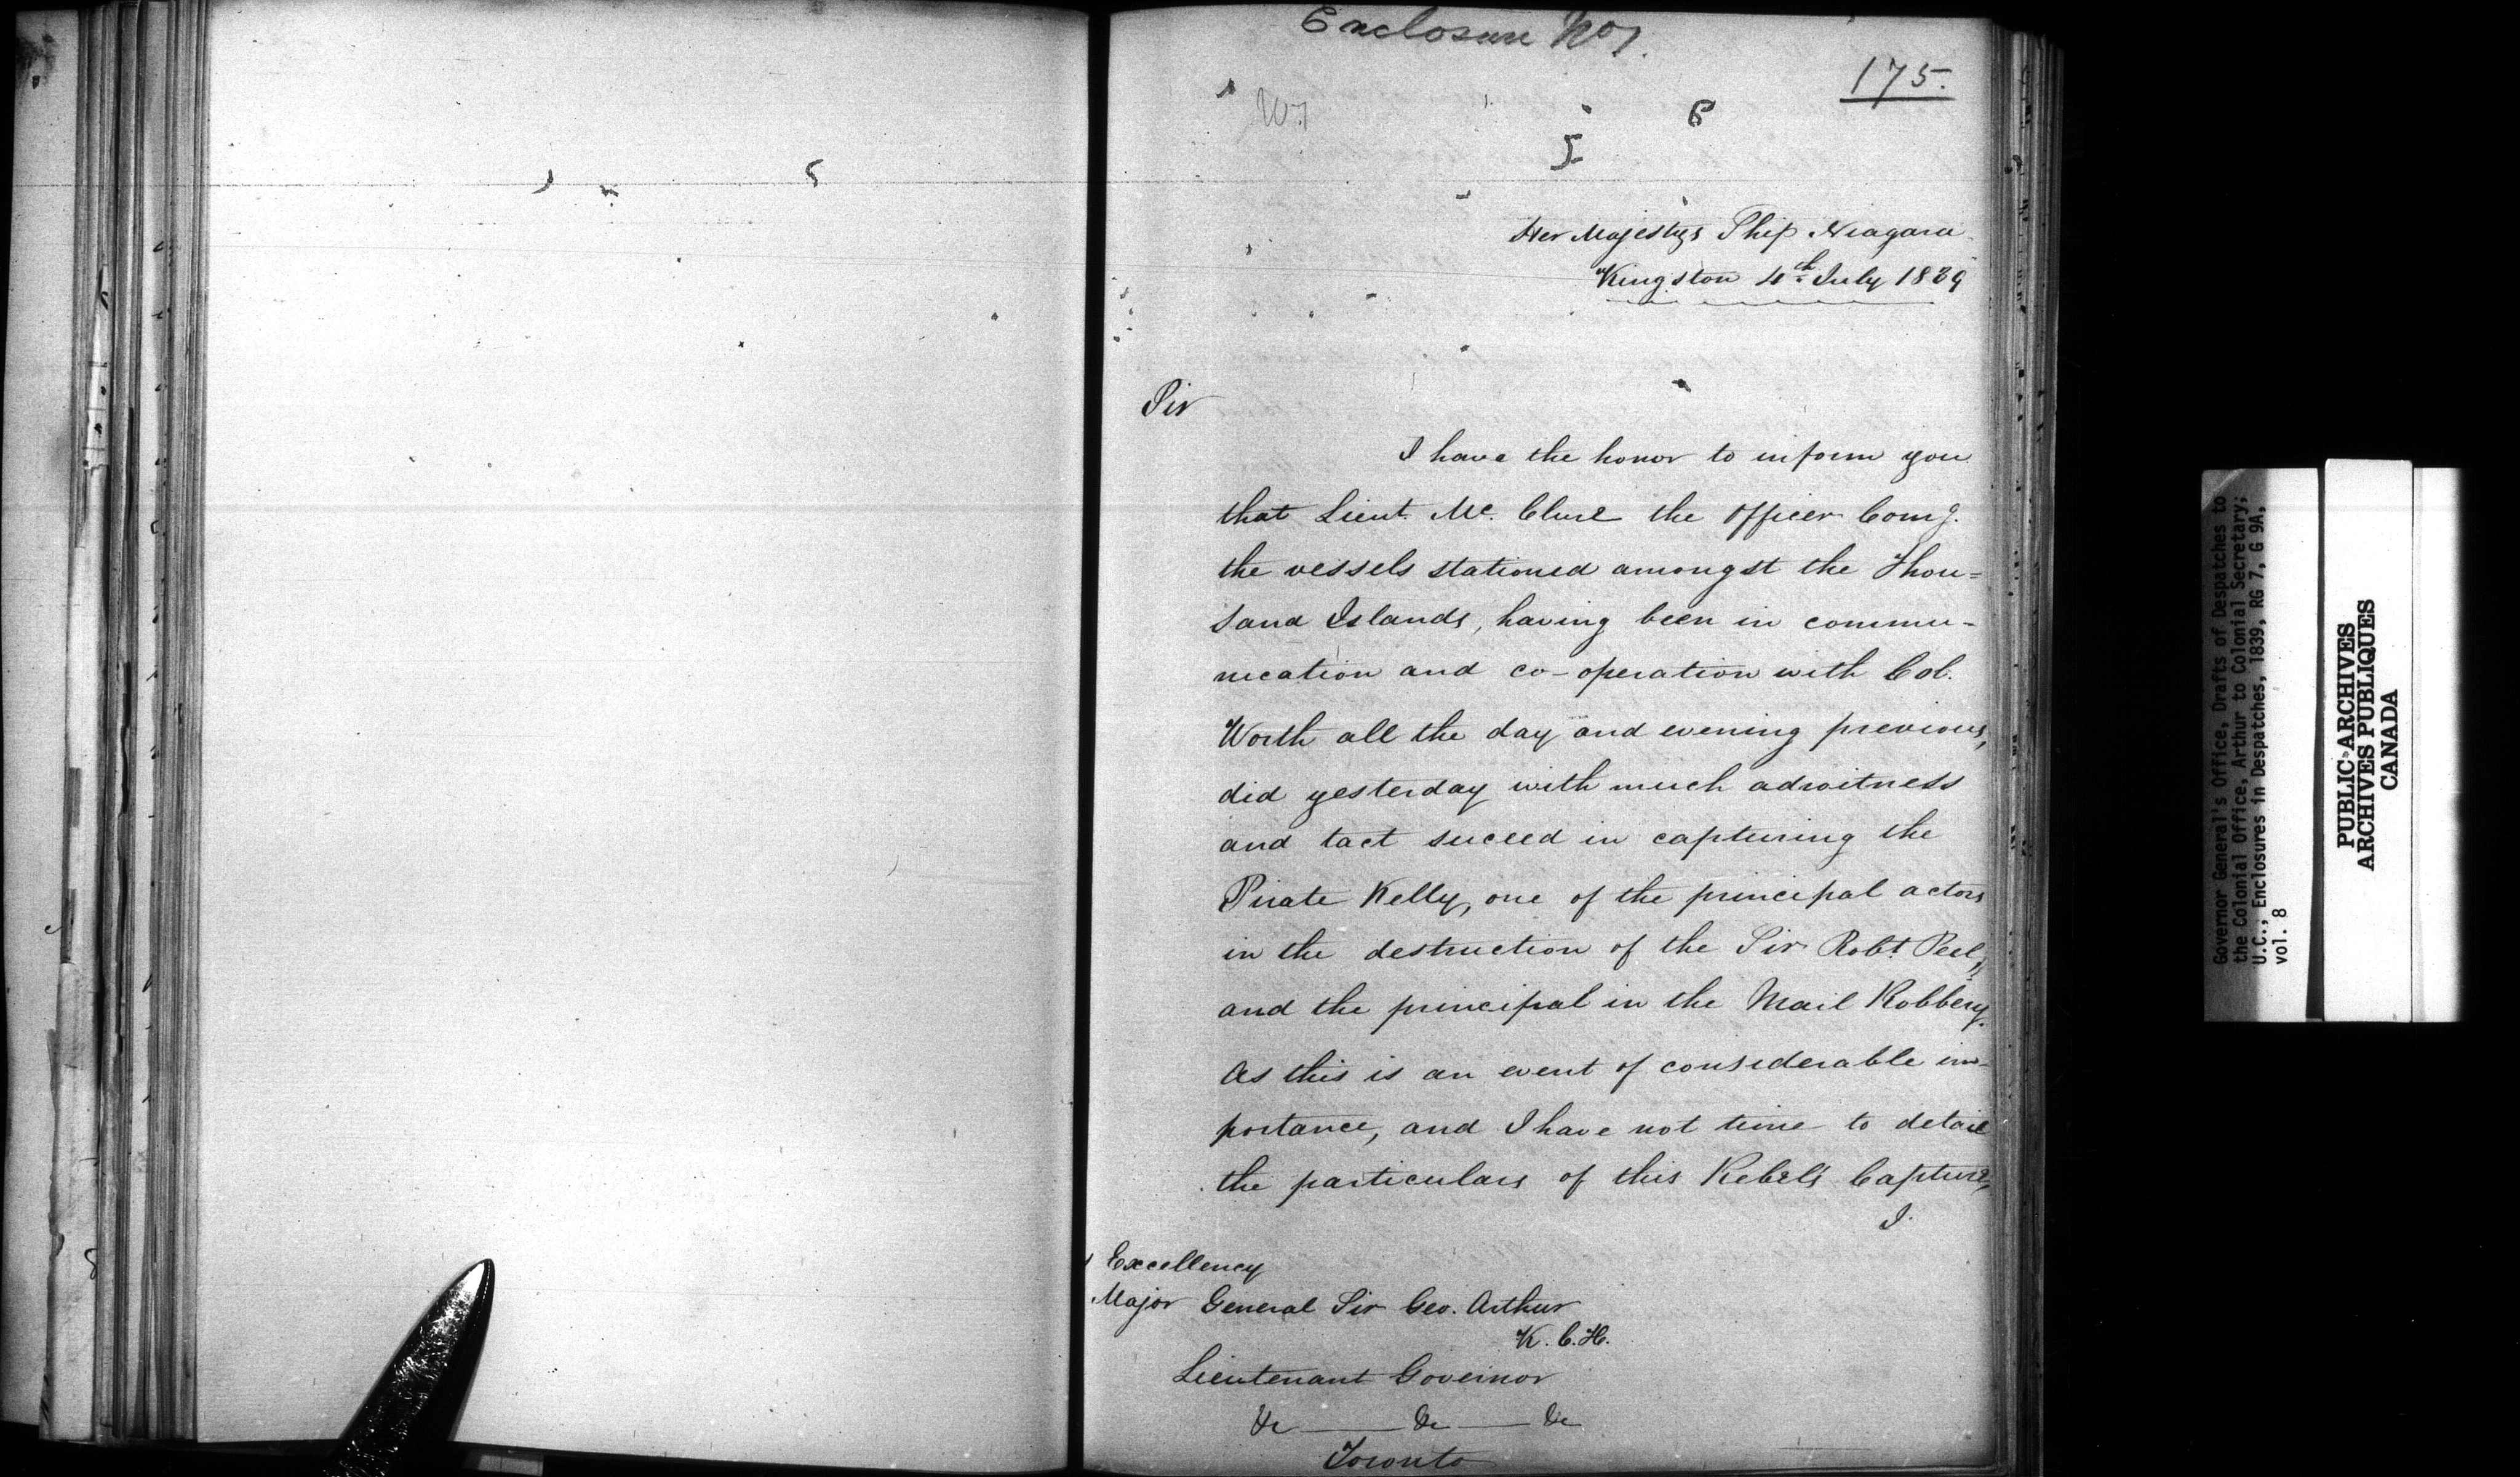 Enclosure No 1.
175.
No 1
Her Majestys Ship Niagara
Kingston 4th July 1839
Sir
I have the honor to inform you
that Lieut. Mc. Clure the Officer Comg.
the vessels stationed amongst the Thou=
sand Islands, having been in commu-
nication and co-operation with Col.
Worth all the day and evening previous,
did yesterday with much adroitness
and tact suceed in capturing the
Pirate Kelly, one of the principal actors
in the destruction of the Sir Robt Peel,
and the principal in the Mail Robbery.
As this is an event of considerable im-
portance, and I have not time to detail
the particulars of this Rebels Capture,
I.
Excellency
Major General Sir Geo. Arthur
K.C.H.
Lieutenant Governor
&c —— &c —— &c
Toronto
Governor General's Office, Drafts of Despatches to
the Colonial Office, Arthur to Colonial Secretary;
U.C., Enclosures in Despatches, 1839, RG 7, G 9A,
vol. 8
PUBLIC ARCHIVES
ARCHIVES PUBLIQUES
CANADA